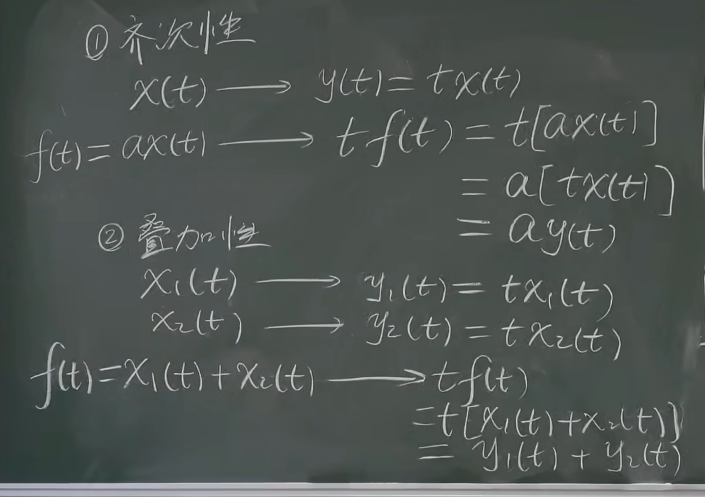 ① 齐次性
x(t) ⟶ y(t) = t x(t)
f(t) = ax(t) ⟶ t f(t) = t[ax(t)]
= a[tx(t)]
= ay(t)
② 叠加性
x₁(t) ⟶ y₁(t) = tx₁(t)
x₂(t) ⟶ y₂(t) = tx₂(t)
f(t) = x₁(t) + x₂(t) ⟶ tf(t)
= t[x₁(t) + x₂(t)]
= y₁(t) + y₂(t)